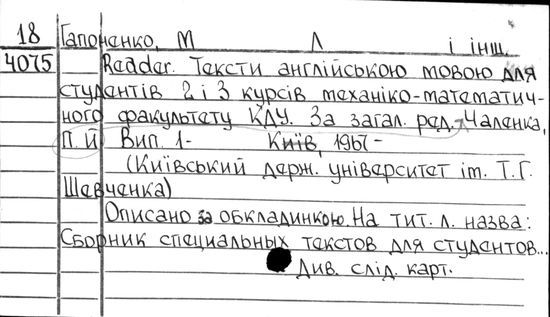 18 Гапоненко, М Л і інш.
4075 Reader. Тексти англійською мовою для
студентів 2 і 3 курсів механіко-математич-
ного факультету КДУ. За загал. ред. Чаленка,
П.Й Вип 1- Київ, 1967-
(Київський держ. університет ім. Т.Г.
Шевченка)
Описано за обкладинкою. На тит. л. назва:
Сборник специальных текстов для студентов...
Див. слід. карт.